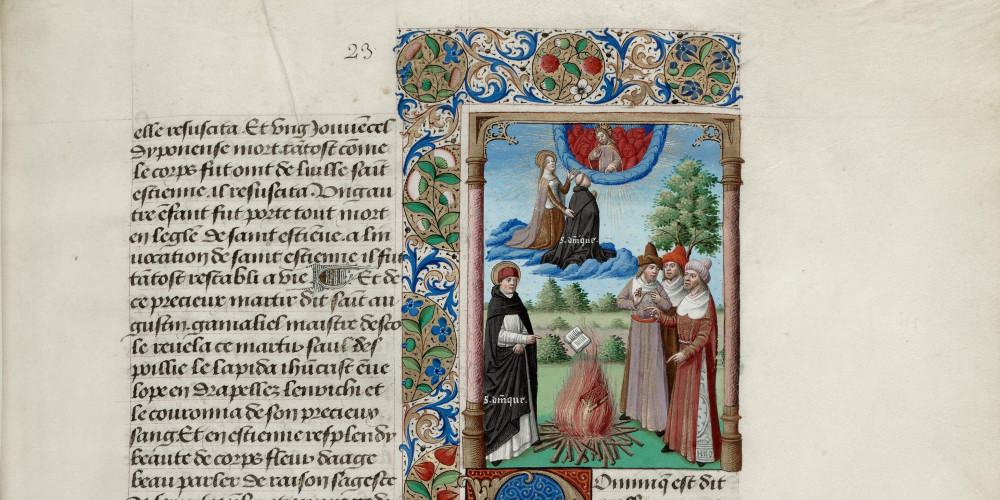 23
elle resuscita. Et vng Jouuencel
dyponense mort. tātost cōme
le corps fut oint de luille saīt
estienne. il resuscita. Vng au
tre enfant fut porte tout mort
en leglē de saint estiēne. a lin
uocation de saint estienne il fut
tātost restabli a vie. Et de
ce precieux martir dit saīt au
gustin. gamaliel maistre desco
le reuela ce martir saul des
poillie le lapida ihūcrist enue
lope en drapellez lenrichi et
le couronna de son precieux
sang. Et en estienne resplendy
beaute de corps fleur daage
beau parler de raison sagesse
S. dn̄ique.
S. dn̄ique.
Ominiq̄ est dit